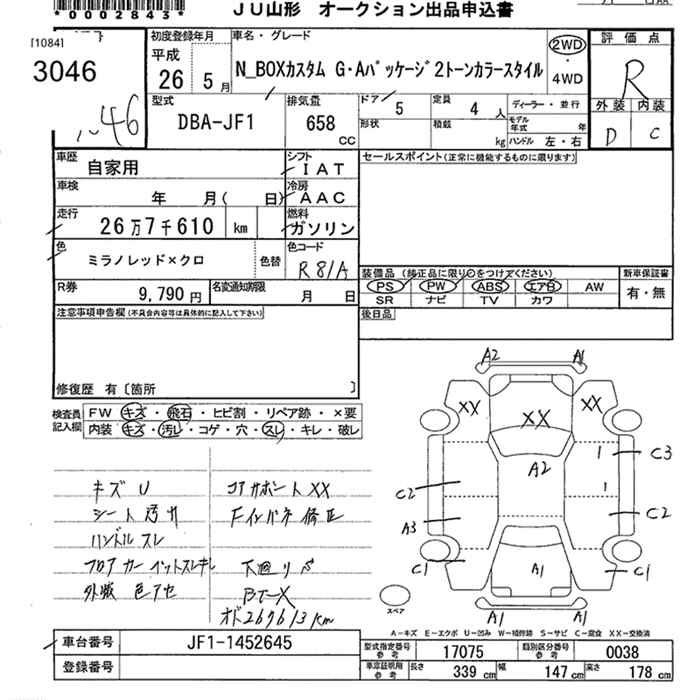 *0002843*
JU山形 オークション出品申込書
[1084]
3046
初度登録年月
平成
26 5月
車名・グレード
N_BOXカスタム G・Aパッケージ2トーンカラースタイル
2WD
・
4WD
評価点
R
外装 内装
D C
型式
DBA-JF1
排気量
658
cc
ドア 5
定員 4人
ディーラー・並行
形状
積載 kg
モデル年式 年
ハンドル 左・右
車歴
自家用
シフト
IAT
セールスポイント(正常に機能するものに限ります)
車検
年 月( 日)
冷房
AAC
走行
26万7千610 km
燃料
ガソリン
色
ミラノレッド×クロ
色替
色コード
R81A
R券
9,790円
名変通知期限
月 日
装備品(純正品に限り○をつけてください)
PS PW ABS エアB AW
SR ナビ TV カワ
新車保証書
有・無
後日品
注意事項申告欄(不具合内容等は具体的に記入して下さい)
修復歴 有〔箇所 〕
検査員
記入欄
FW キズ・飛石・ヒビ割・リペア跡・×要
内装 キズ・汚レ・コゲ・穴・スレ・キレ・破レ
キズU
シート汚れ
ハンドルスレ
フロアカーペットスレキレ
外板色アセ
コアサポートXX
Fインパネ修正
下廻りサビ
オド267613km
A2 A1
XX XX XX
A2
1 C3
1
C2 C2
A3
C1 C1
A1
A1 A1
スペア
A-キズ E-エクボ U-凹み W-補修跡 S-サビ C-腐食 XX-交換済
車台番号 JF1-1452645
登録番号
型式指定番号 参考 17075
類別区分番号 参考 0038
車庫証明用 参考 長さ 339cm 幅 147cm 高さ 178cm